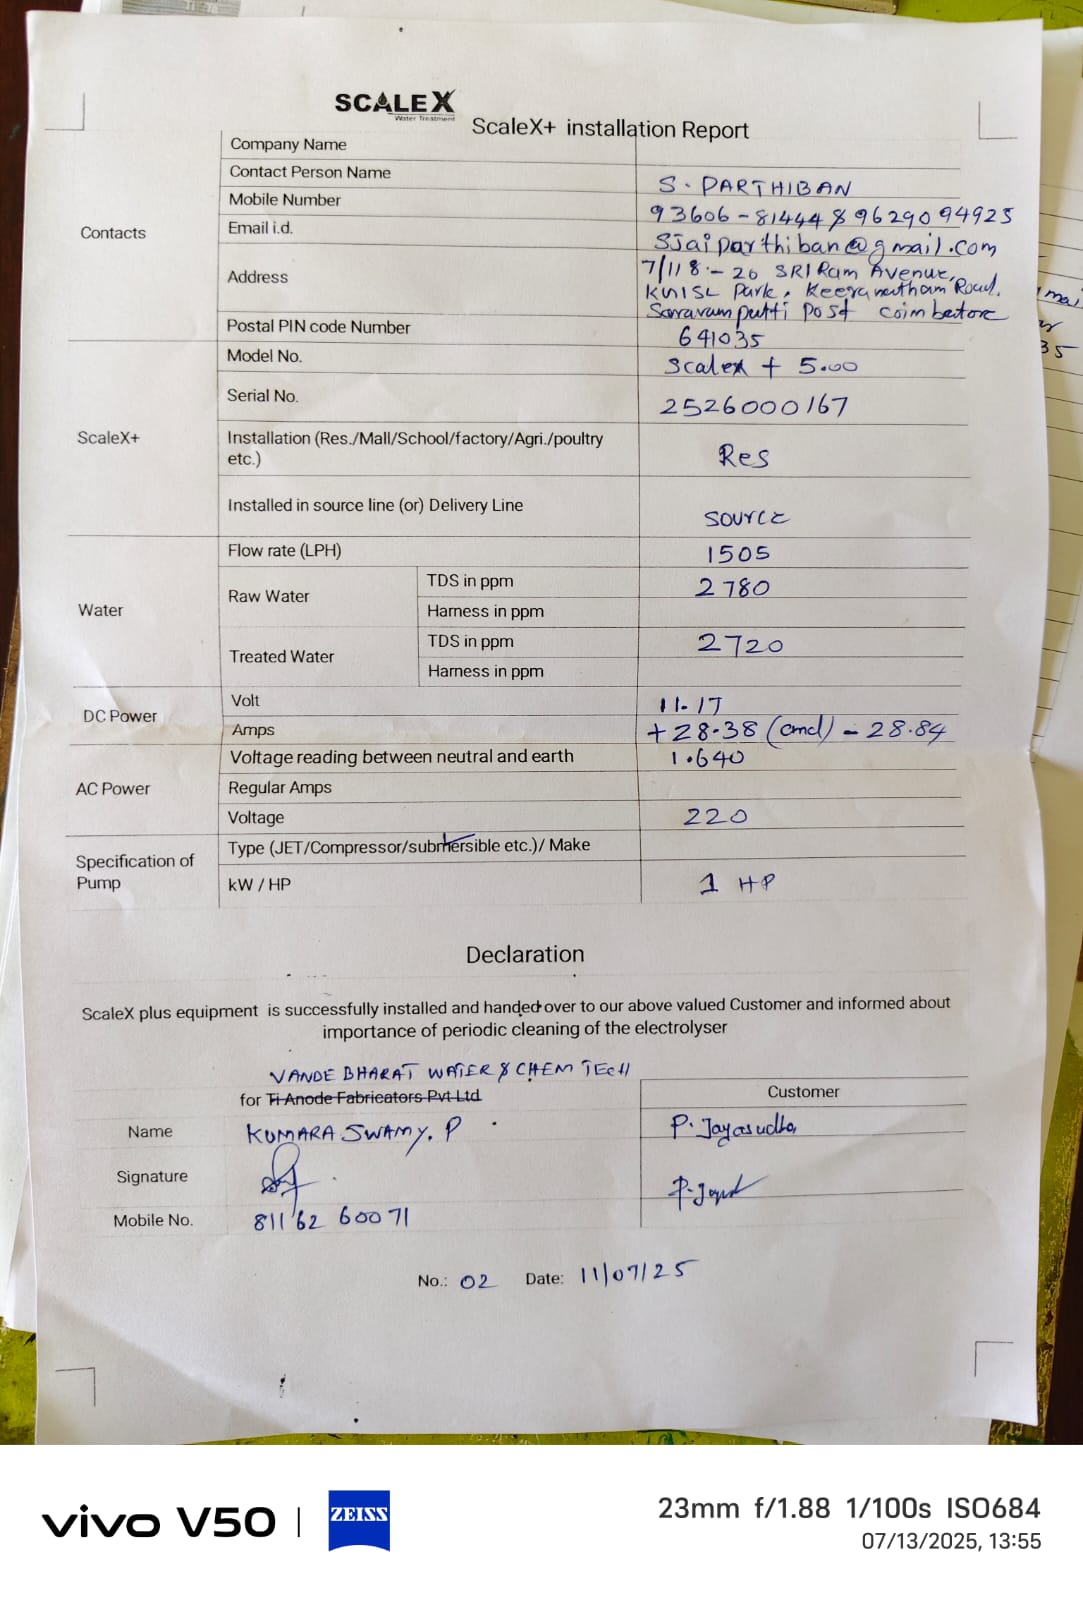 SCALEX
Water Treatment
ScaleX+ installation Report
Contacts
Company Name
Contact Person Name S. PARTHIBAN
Mobile Number 93606-81444 & 9629094925
Email i.d. SJaiparthiban@gmail.com
Address 7/118:- 20 SRI Ram Avenue,
KNISL Park, Keeranatham Road,
Saravanampatti post coimbatore
Postal PIN code Number 641035
ScaleX+
Model No. Scalex + 5.00
Serial No. 2526000167
Installation (Res./Mall/School/factory/Agri./poultry
etc.) Res
Installed in source line (or) Delivery Line source
Water
Flow rate (LPH) 1505
Raw Water TDS in ppm 2780
Harness in ppm
Treated Water TDS in ppm 2720
Harness in ppm
DC Power
Volt 11.17
Amps +28.38 (and) - 28.84
AC Power
Voltage reading between neutral and earth 1.640
Regular Amps
Voltage 220
Specification of
Pump
Type (JET/Compressor/submersible etc.)/ Make
kW / HP 1 HP
Declaration
ScaleX plus equipment is successfully installed and handed over to our above valued Customer and informed about
importance of periodic cleaning of the electrolyser
VANDE BHARAT WATER & CHEM TECH
for Ti Anode Fabricators Pvt Ltd Customer
Name KUMARA SWAMY. P P. Jayasudha
Signature
Mobile No. 81162 60071
No.: 02 Date: 11/07/25
vivo V50 | ZEISS
23mm f/1.88 1/100s ISO684
07/13/2025, 13:55